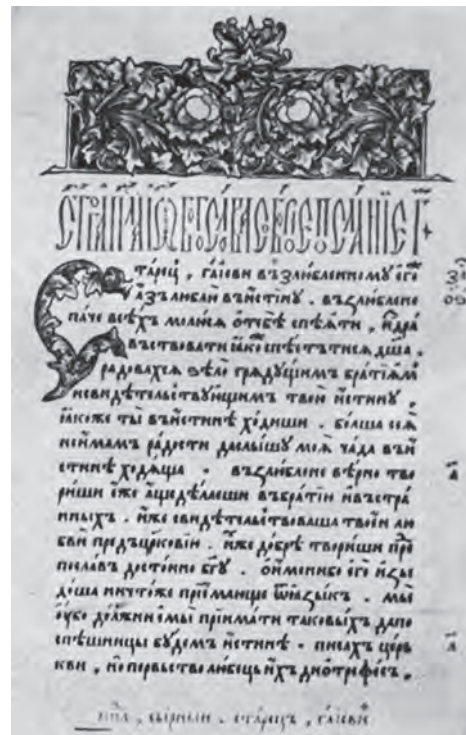 та́рецъ , га́їеви възлю́бленномꙋ є҆го́
а҆́зъ любла́й въи҆́стинꙋ . възлю́блене
па́че всѣ́хъ молю́ся ѻ҆тебѣ̀ спѣ́яти , и҆здра́
въствовати ꙗ҆́коже спѣ́етътися дш҃а ,
ра́довахся ѕѣлѡ̀ гряду́щимъ бра́тїямъ
и҆свидѣ́тельствꙋющимъ твою̀ и҆́стинꙋ ,
ꙗ҆́коже ты̀ въи҆́стинѣ хо́диши . бо́лша сея̀
неи҆́мамъ ра́дости даслы́шꙋ моя̀ ча́да въи҆́
стинѣ ходя́ща . възлю́блене вѣ́рно тво
ри́ши є҆́же а҆́щедѣ́лаеши въбра́тїи и҆въстра́
нныхъ . и҆́же свидѣ́тельствоваша твое́й лю
бвѝ предъцр҃ковїю . и҆́же до́брѣ твори́ши пре
посла́въ досто́йно бг҃ꙋ . ѻ҆и҆́менибо є҆го̀ и҆зы
до́ша ничто́же прїе́млюще ѿꙗ҆зы́къ . мы̀
ᲂу҆́бо до́лжни є҆смы̀ прїима́ти таковы́хъ дапо
спѣ́шницы бꙋ́демъ и҆́стинѣ . писа́хъ це́рь
кви , но̀ первьство любецъ и҆́хъ дїотрефе́съ ,
сы́рныи . ста́рецъ , га́їеви